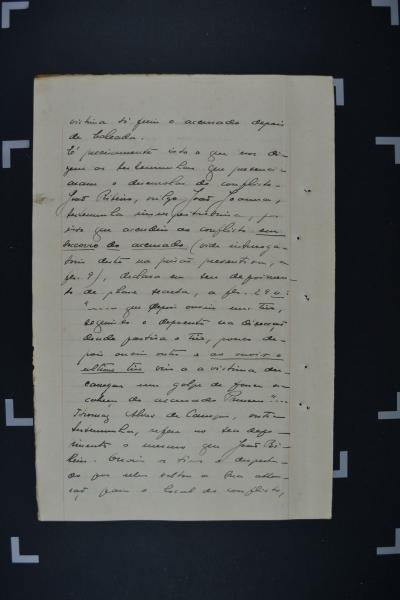 victima só feriu o accusado depois
de baleada.
É precisamente isto o que nos di-
zem as testemunhas que presenci-
aram o desenrolar do conflicto.
João Ribeiro, vulgo João Joanna,
testemunha insuspeitissima, por
isso que acudiu ao conflicto em
soccorro do accusado (vide interroga-
torio deste na prisão preventiva, a
fls. 9), declara em seu depoimen-
to de plano secreta, a fls. 29 v.:
"..... que depois ouviu um tiro,
seguindo e depressa na direcção
donde partira o tiro, pouco de-
pois ouviu outro e ao ouvir o
ultimo tiro viu a a victima des-
carregar um golpe de fouce na
cabeça do accusado
Alves de Camargo, outra
testemunha, refere no seu depo-
imento o mesmo que João Ri-
beiro. Ouviu os tiros e
por elles voltou a sua atten-
ção para o local do conflicto,